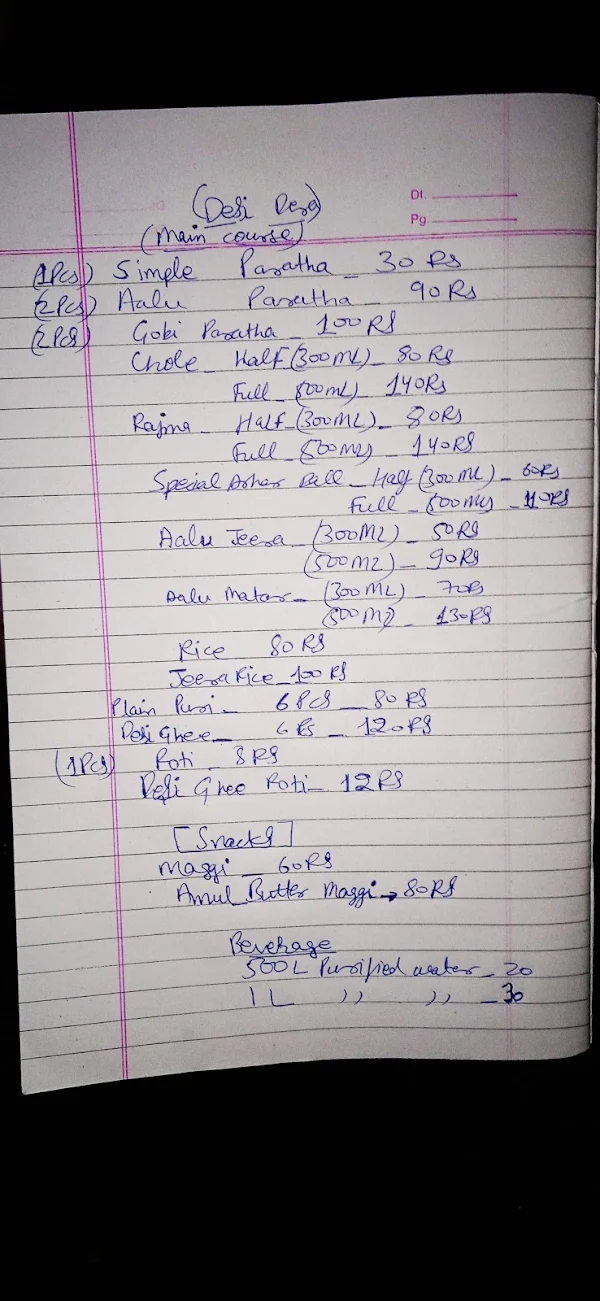 Dt.
Pg.
(Desi Dera)
(Main course)
(1Pcs) Simple Paratha _ 30 Rs
(2Pcs) Aalu Paratha _ 90 Rs
(2Pcs) Gobi Paratha _ 100 RS
Chole _ Half (300 ML) _ 80 RS
Full _ 500 mL) _ 140 Rs
Rajma _ Half _ (300 ML) _ 80 Rs
Full _ 500 ML) _ 140 RS
Special Arhar Dall _ Half (300 ML) _ 60 Rs
Full _ 500 ML) _ 110 RS
Aalu Jeera _ (300 ML) _ 50 RS
(500 ML) _ 90 RS
Aalu Matar _ (300 ML) _ 70 RS
(500 ML) _ 130 RS
Rice 80 RS
Jeera Rice _ 100 RS
Plain Puri _ 6 Pcs _ 80 RS
Desi Ghee _ 6 Ps _ 120 RS
(1Pcs) Roti _ 8 RS
Desi Ghee Roti _ 12 RS
[Snacks]
Maggi _ 60 RS
Amul Butter Maggi → 80 RS
Beverage
500 L Purified water _ 20
1 L ,, ,, _ 30